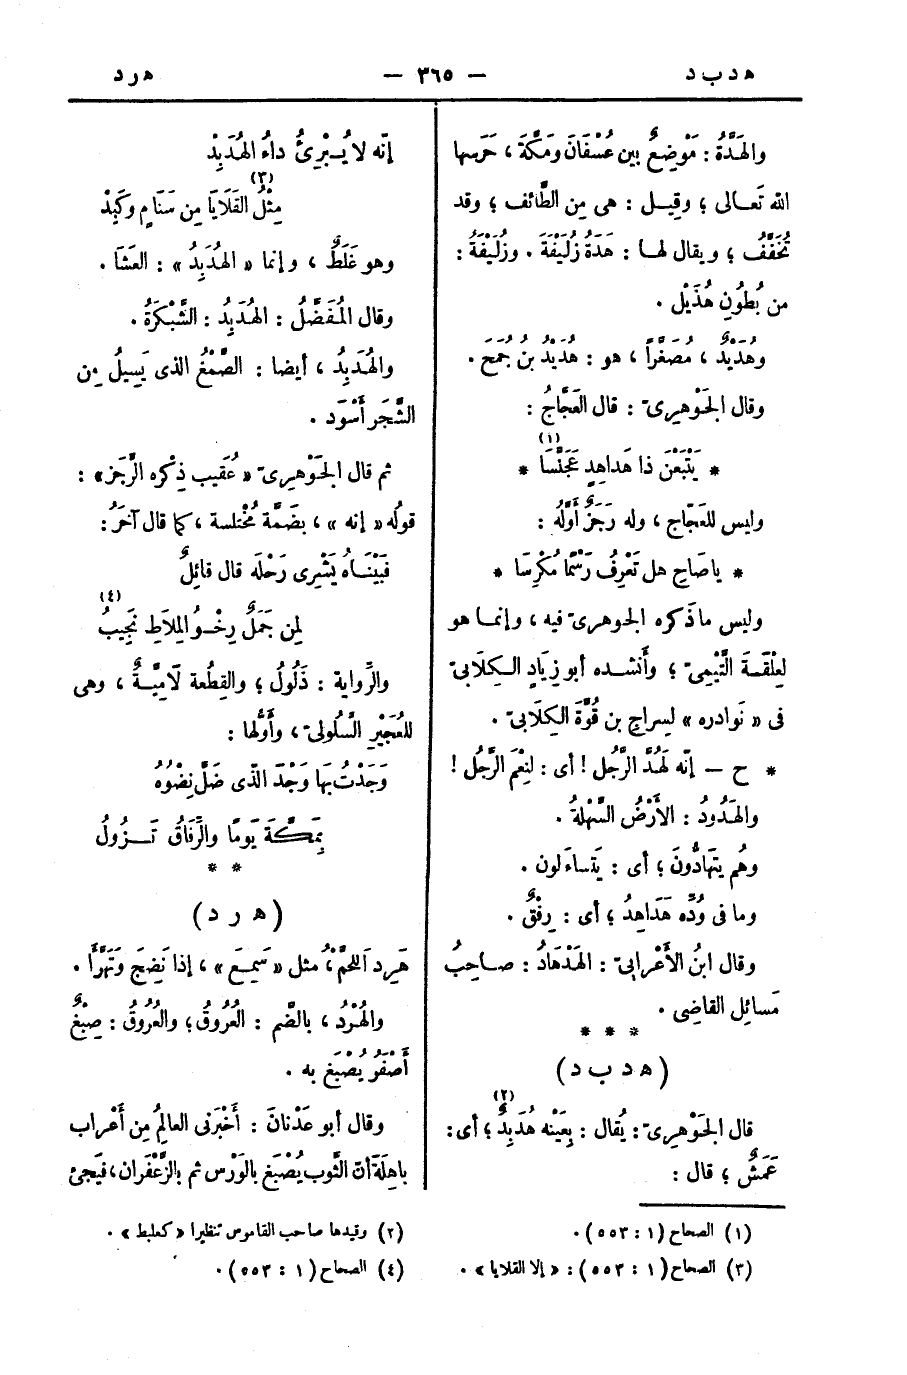 هدبد — ٣٦٥ — هرد
والهَدَّةُ : مَوْضِعٌ بين عُسْفَانَ ومَكَّةَ ، حَرَسها
الله تَعـالى ؛ وقِيـل : هى مِن الطَّائف ؛ وقد
تُخَفَّفُ ؛ ويقال لهـا : هَدَةُ زُلَيْفَةَ . وزُلَيْفَةُ :
من بُطُونِ هُذَيْل .
وهُدَيْدٌ ، مُصَغَّراً ، هو : هُدَيْدُ بن جُمَحَ .
وقال الجَوْهرِىّ : قال العَجَّاجُ :
* يَتْبَعْنَ ذا هَداهِدٍ عَجَنَّسَا (١) *
وليس للعَجّاج ، وله رَجَزٌ أَوَّلُه :
* ياصَاحِ هل تَعْرِفُ رَسْمًا مُكْرَسَا *
وليس ماذَكره الجوهرىّ فيه ، وإنمـا هو
لِعِلْقَـةَ التَّيْمِىّ ؛ وأَنشده أبو زِيَادٍ الـكِلَابىّ
فى « نَوادره » لِسراجِ بن قُوَّةَ الكِلَابىّ .
* ح — إنّه لَهَدَّ الرَّجُل ! أى : لنِعْمَ الرَّجُل !
والهَدُودُ : الأَرْضُ السَّهْلةُ .
وهُم يتَهَادُّونَ ؛ أى : يَتَساءَلون .
وما فى وُدِّه هَدَاهِدُ ؛ أى : رِفْقٌ .
وقال ابنُ الأَعْرابىّ : الهَدْهَادُ : صـاحِبُ
مَسائل القاضِى .
* * *
( هـ د ب د )
قال الجَوْهرىّ : يُقال : بِعَيْنه هُدَبِدٌ (٢) ؛ أى :
عَمَشٌ ؛ قال :
إنّه لا يُـبْرِئُ داءُ الهُدَبِدْ
مِثْلُ القَلَايَا مِن سَنَامٍ وكَبِدْ (٣)
وهو غَلَطٌ ، وإنما « الهُدَبِدُ » : العَشَا .
وقال المُفَضَّلُ : الهُدَبِدُ : الشَّبْكَرَةُ .
والهُدَبِدُ ، أيضا : الصَّمْغُ الذى يَسِيلُ مِن
الشَّجَر أَسْوَد .
ثم قال الجَوْهرىّ « عُقيب ذِكْره الرَّجَز» :
قولُه « إنه » ، بضَمَّة مُخْتلسة ، كما قال آخَرُ :
فَبَيْنَـاهُ يَشْرِى رَحْلَه قال قائِلٌ
لِمن جَمَلٌ رِخْـوُ المِلَاطِ نَجِيبُ (٤)
والرِّواية : ذَلُولُ ؛ والقِطْعة لَامِيَّـةٌ ، وهى
للعُجَيْرِ السَّلُولىّ ، وأَوَّلُها :
وَجَدْتُ بها وَجْدَ الذّى ضَلَّ نِضْوُه
بِمَكَّةَ يَوْمًا والرِّفَاقُ نَـزُولُ
* *
( هـ ر د )
هَرِد اللحْمُ ، مثل « سَمِـعَ » ، إذا نَضِجَ وتَهَرَّأَ .
والهُرْدُ ، بالضّم : العُرُوقُ ؛ والعُرُوقُ : صِبْغٌ
أَصْفَرُ يُصْبَغ به .
وقال أبو عَدْنانَ : أَخْبَرَنى العالِمُ مِن أَعْراب
باهِلَةَ أنّ الثَّوب يُصْبَغ بالوَرْس ثم بالزَّعْفَران ، فيَجِئ
(١) الصحاح (١ : ٥٥٣) .
(٢) وقيدها صاحب القاموس تنظيرا « كعلبط » .
(٣) الصحاح (١ : ٥٥٣) : « إلا القلايا » .
(٤) الصحاح (١ : ٥٥٣) .